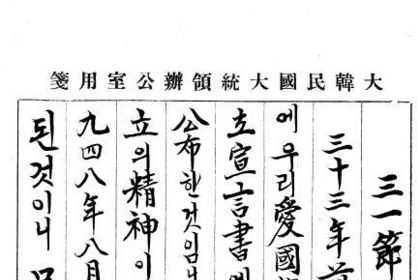 大韓民國大統領辦公室用箋
三一節
三十三年
에우리愛國
立宣言書에
公布한것임니
立의精神이
九四八年八月
된것이니